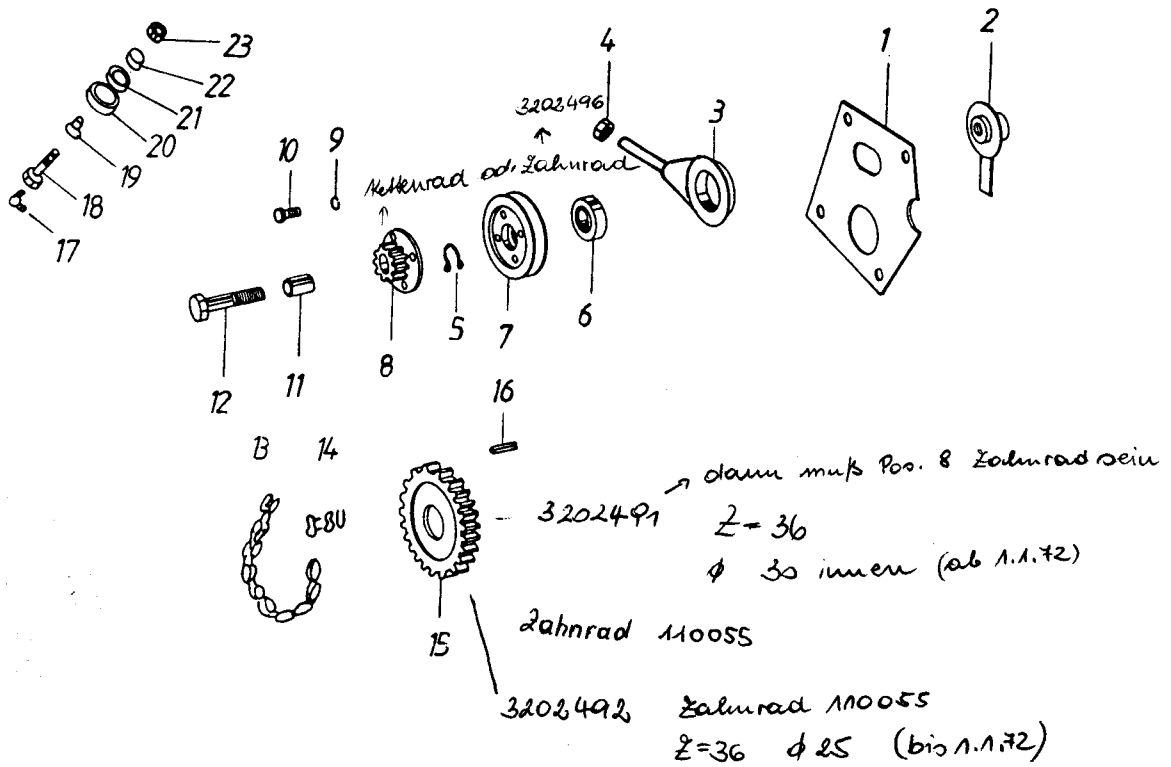 23
22
21
20
19
18
17
4
1
2
3
3202496
10
9
Kettenrad od. Zahnrad
12
11
8
5
7
6
16
13
14
dann muß Pos. 8 Zahnrad sein
3202491
Z = 36
ϕ 30 innen (ab 1.1.72)
15
Zahnrad 110055
3202492 Zahnrad 110055
Z=36 ϕ 25 (bis 1.1.72)